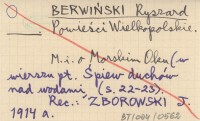 BERWIŃSKI Ryszard
Powieści Wielkopolskie.
M.i. o Morskim Oku (w
wierszu pt. Śpiew duchów
nad wodami (s. 22-23).
Rec.: ZBOROWSKI J.
1914 a.